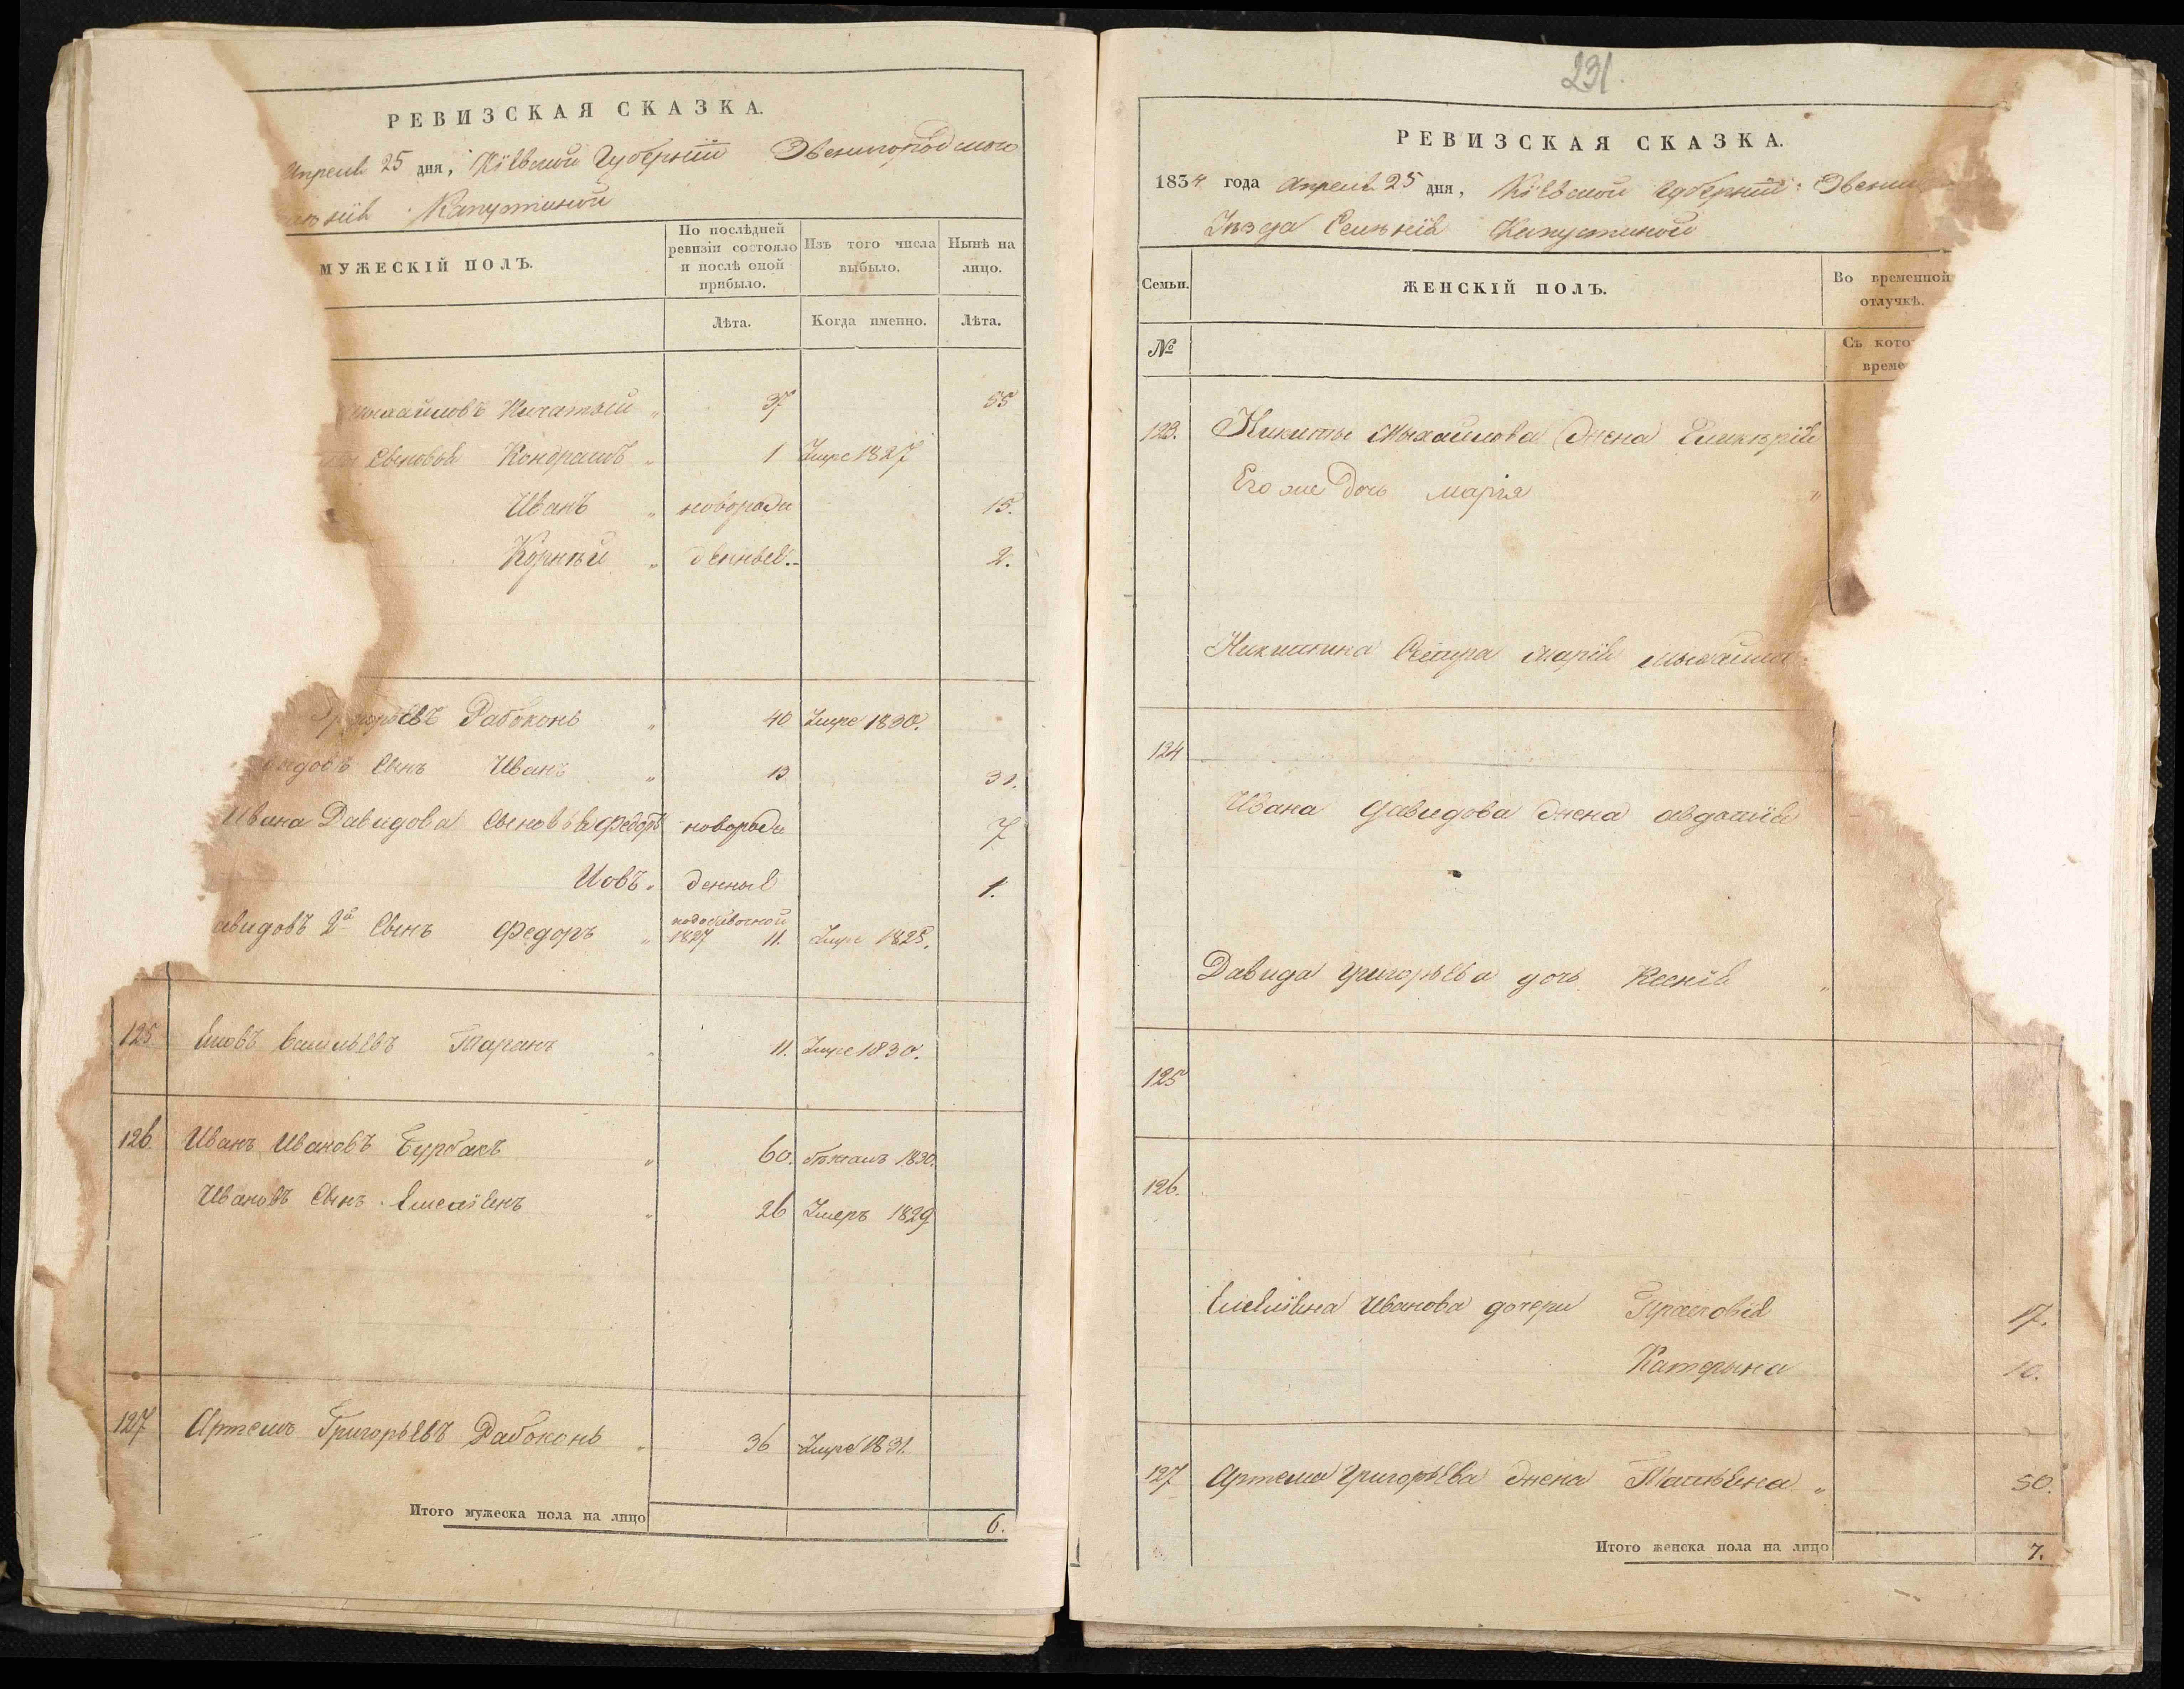 РЕВИЗСКАЯ СКАЗКА.
Апреля 25 дня, Кіевской Губерніи Звенигородского
Капустиной
МУЖЕСКІЙ ПОЛЪ.
По послѣдней ревизіи состояло и послѣ оной прибыло.
Изъ того числа выбыло.
Нынѣ на лицо.
Лѣта.
Когда именно.
Лѣта.
37 55
Сыновья Кондратъ " 1 Умре 1827
Иванъ " новорож 15.
Корнѣй " денные 2.
Рабоконь " 40 Умре 1830.
Сынъ Иванъ " 13 31.
Ивана Давидова Сыновья Федоръ новорож 7
Іовъ " денные 1.
авидовъ 2й Сынъ Федоръ " 1827 11. Умре 1825.
125 Васильевъ Таранъ " 11. Умре 1830.
126. Иванъ Ивановъ Бурбакъ " 60. бѣжалъ 1830.
Ивановъ Сынъ " 26 Умеръ 1829
127 Артемъ Григорьевъ Рабоконь " 36 Умре 1831.
Итого мужеска пола на лицо 6.
231.
РЕВИЗСКАЯ СКАЗКА.
1834 года Апреля 25 дня, Кіевской Губерніи Звени
Уѣзда Селенія Капустиной
Семьи.
ЖЕНСКІЙ ПОЛЪ.
Во временной отлучкѣ.
№
Съ кото
време
123. Никиты Михайлова Жена Гликерія
Его же дочь Марія "
Никитина Сестра Марія
124
Ивана Давидова Жена Авдотія
Давида Григорьева дочь Ксенія "
125
126.
Иванова дочери Прасковія 17.
Катерына 10.
127 Артема Григорьева Жена Татьяна " 50.
Итого женска пола на лицо 7.